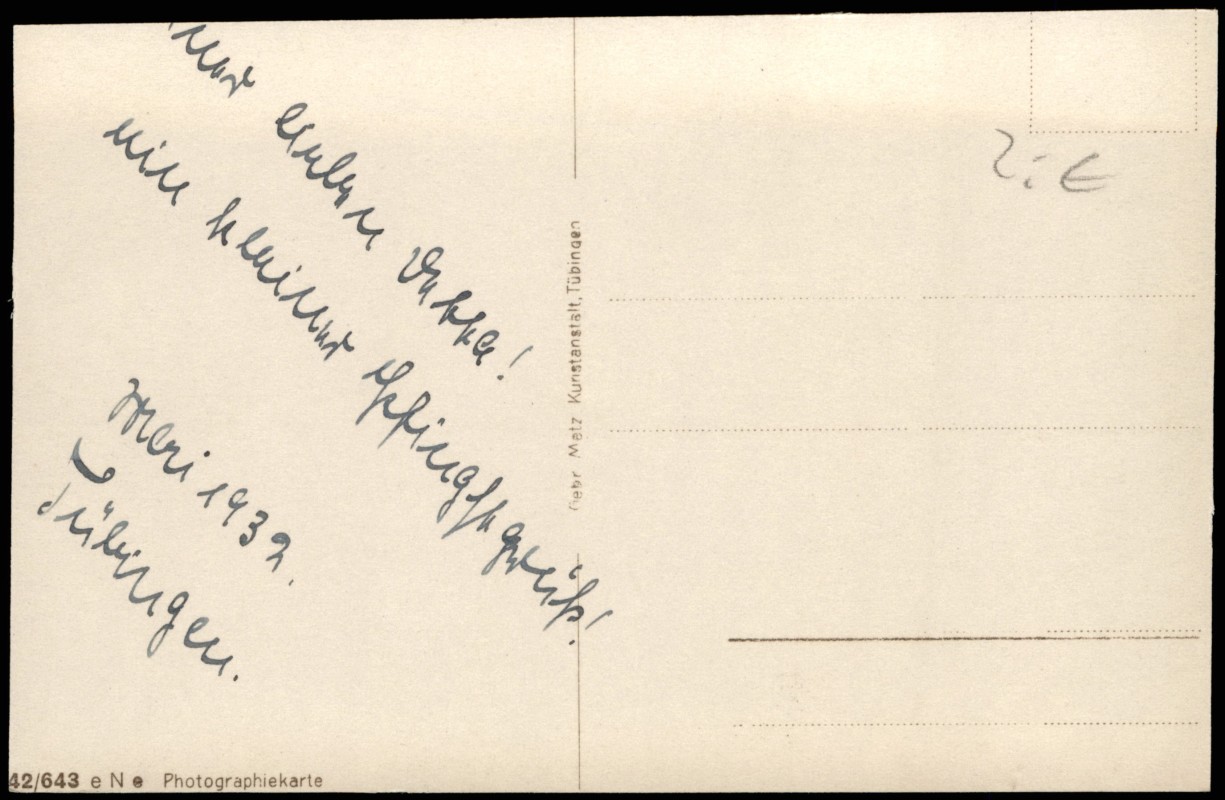 lieben
ein kleiner Pfingstgruß!
Mai 1932.
Tübingen.
Gebr Metz Kunstanstalt, Tübingen
42/643 e N e Photographiekarte